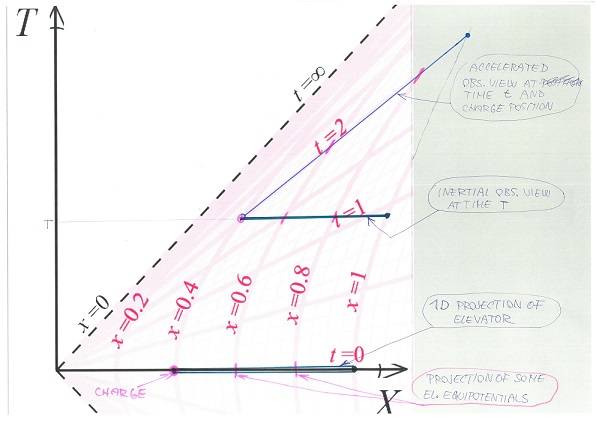 T
t=∞
ACCELERATED
OBS. VIEW AT
TIME t AND
CHARGE POSITION
t=2
INERTIAL OBS. VIEW
AT TIME T
T
t=1
x=0
x=0.2
x=0.4
x=0.6
x=0.8
x=1
1D PROJECTION OF
ELEVATOR
t=0
CHARGE
X
PROJECTION OF SOME
EL. EQUIPOTENTIALS